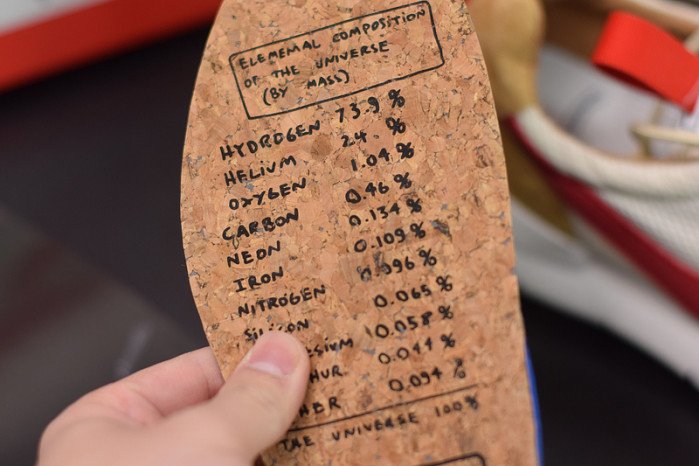 ELEMEMAL COMPOSITION
OF THE UNIVERSE
(BY MASS)
HYDROGEN 73.9 %
HELIUM 24. %
OXYGEN 1.04 %
CARBON 0.46 %
NEON 0.134 %
IRON 0.109 %
NITROGEN 0.096 %
SILICON 0.065 %
SIUM 0.058 %
HUR. 0.044 %
HER 0.094 %
THE UNIVERSE 100%